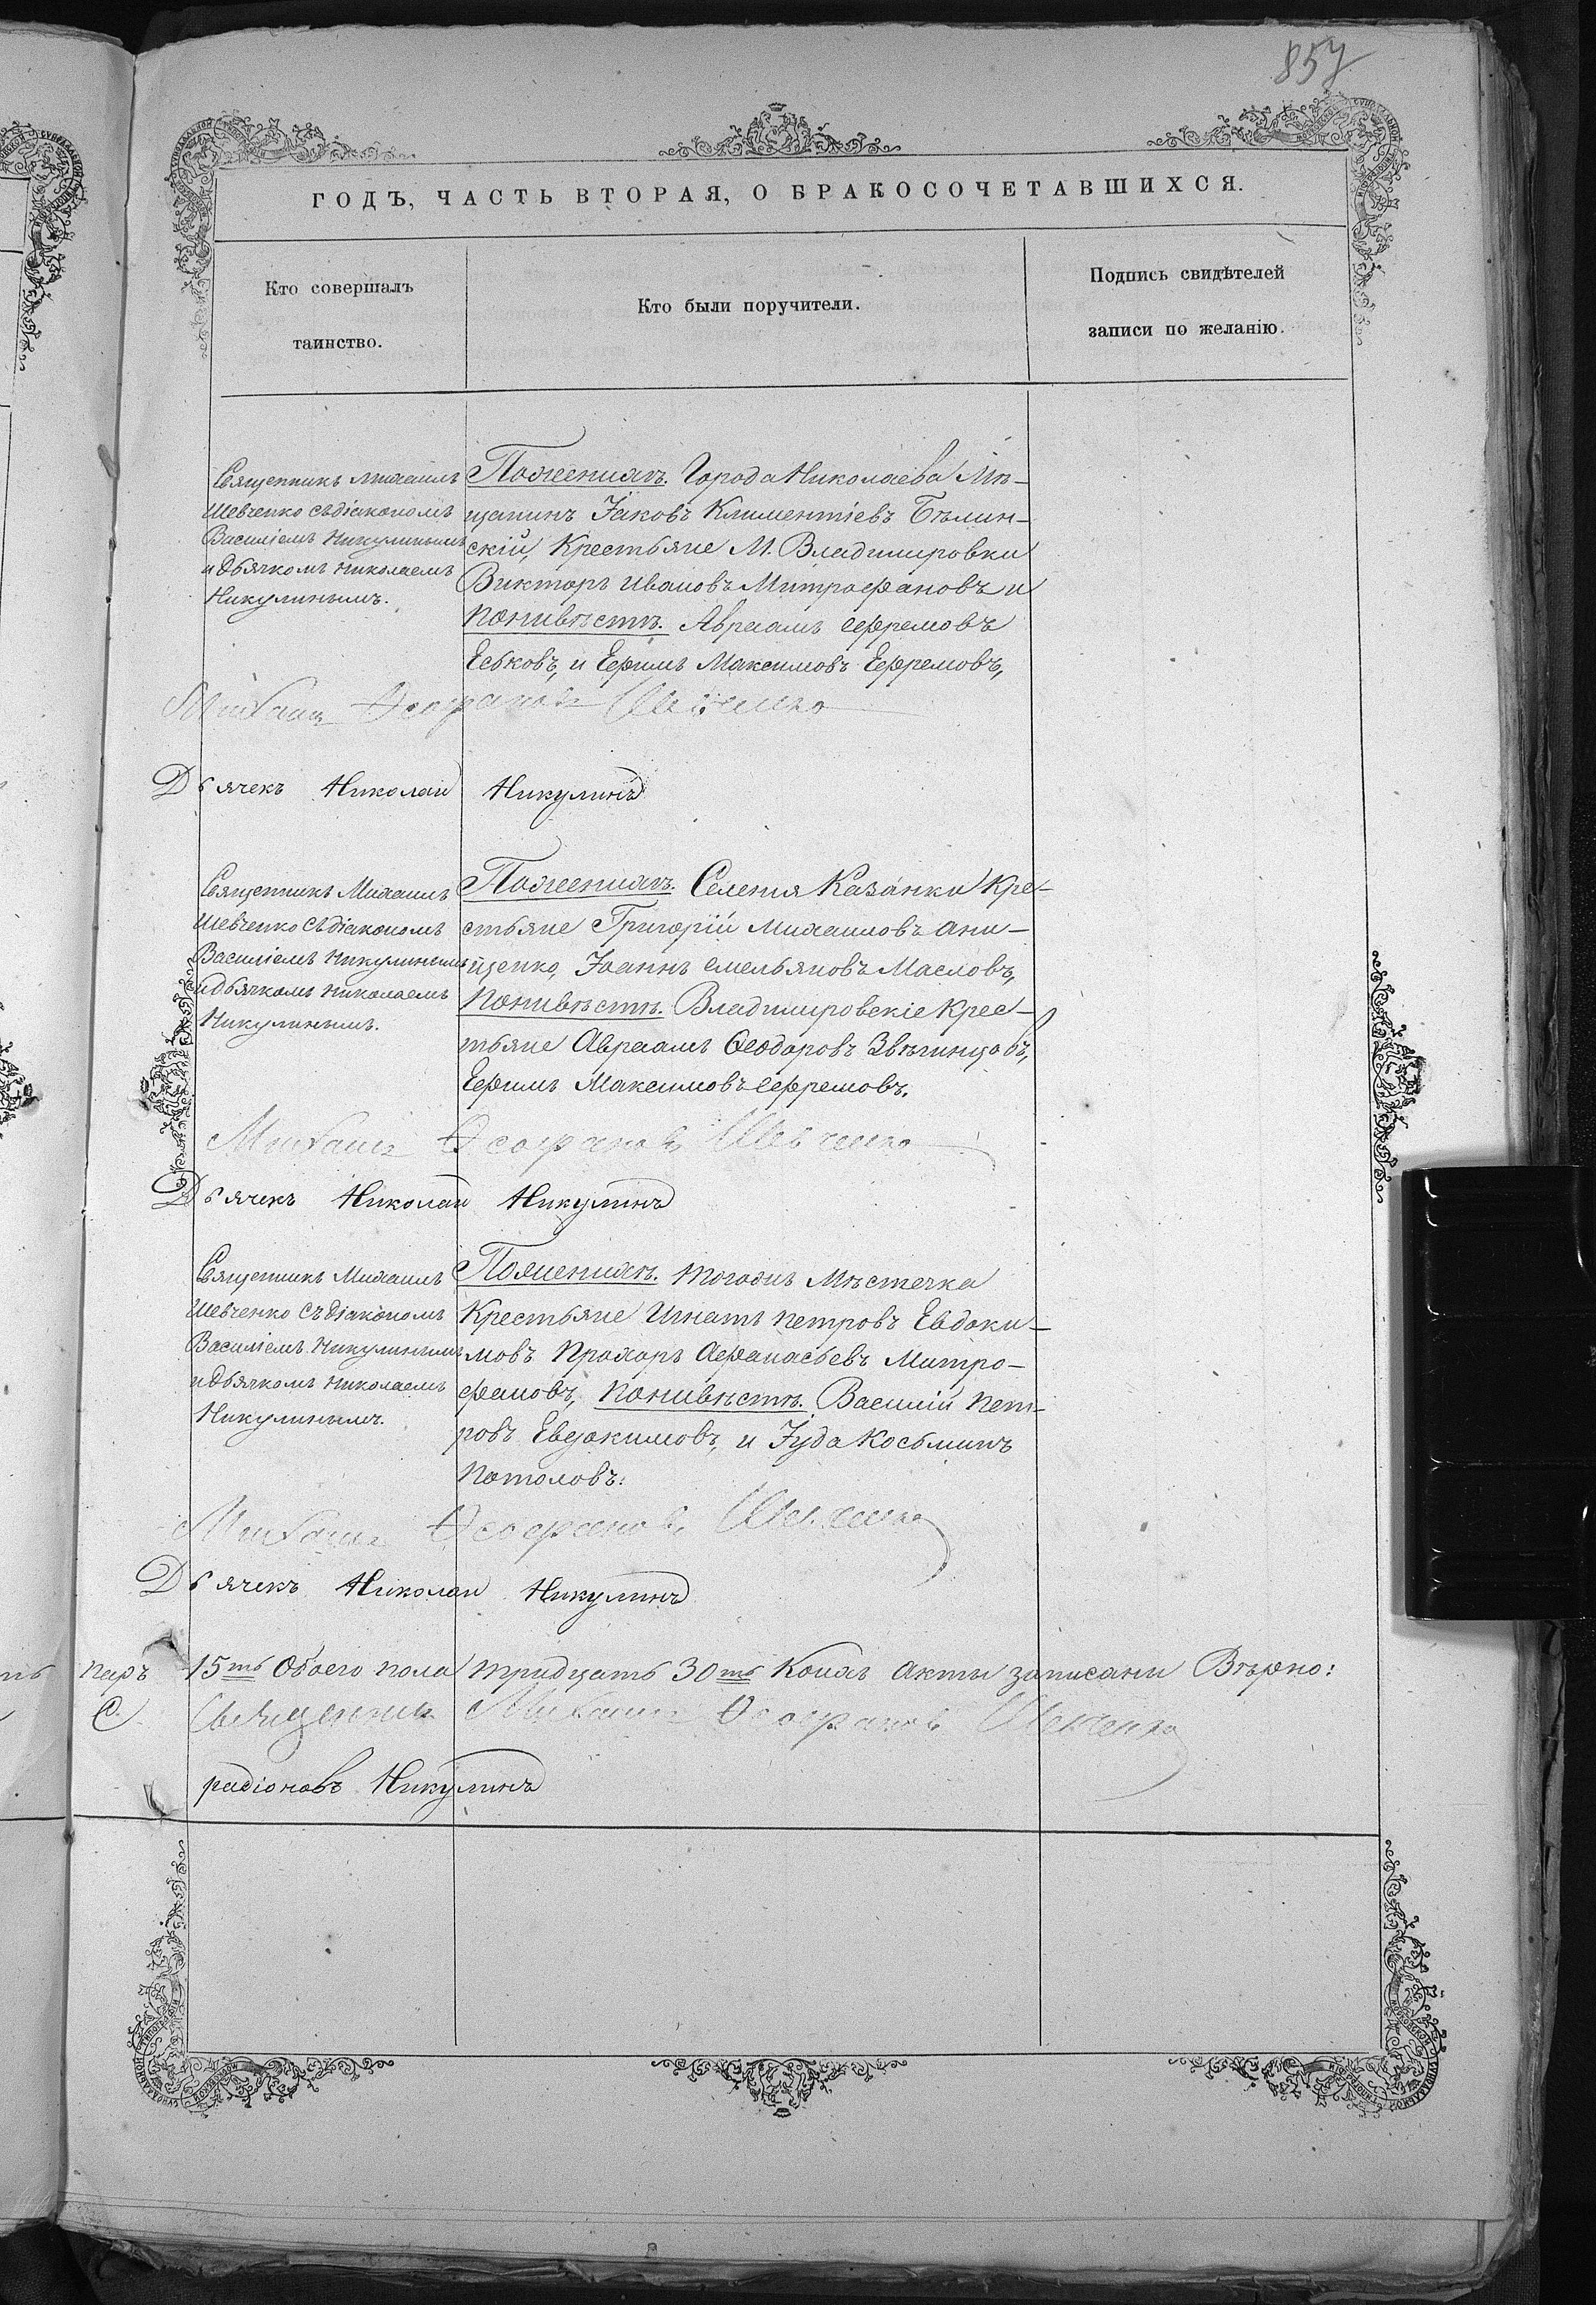 857
ГОДЪ, ЧАСТЬ ВТОРАЯ, О БРАКОСОЧЕТАВШИХСЯ.
Кто совершалъ
таинство.
Кто были поручители.
Подпись свидѣтелей
записи по желанію.
Священникъ Михаилъ
Шевченко съ діакономъ
Василіемъ Никулинымъ
и дьячкомъ Николаемъ
Никулинымъ.
Поженихѣ. Города Николаева Мѣ-
щанинъ Іаковъ Климентіевъ Бѣлин-
скій, Крестьяне М. Владимировки
Викторъ Ивановъ Митрофановъ и
Поневѣстѣ. Авраамъ Ефремовъ
Еськовъ, и Ефимъ Максимовъ Ефремовъ,
Михаилъ Ѳеофановъ Шевченко
Дьячекъ Николай Никулинъ
Священникъ Михаилъ
Шевченко съ діакономъ
Василіемъ Никулинымъ
и дьячкомъ Николаемъ
Никулинымъ.
Поженихѣ. Селенія Казанки Кре-
стьяне Григорій Михаиловъ Они-
щенко, Іоаннъ Емельяновъ Масловъ,
Поневѣстѣ. Владимировскіе Крес-
тьяне Авраамъ Ѳеодоровъ Звѣгинцовъ,
Ефимъ Максимовъ Ефремовъ.
Михаилъ Ѳеофановъ Шевченко
Дьячекъ Николай Никулинъ
Священникъ Михаилъ
Шевченко съ діакономъ
Василіемъ Никулинымъ
и дьячкомъ Николаемъ
Никулинымъ.
Поженихѣ. Тогожъ Мѣстечка
Крестьяне Игнатъ Петровъ Евдоки-
мовъ Прохоръ Афанасьевъ Митро-
фановъ, Поневѣстѣ. Василій Пет-
ровъ Евдокимовъ, и Іуда Косьминъ
Потоловъ:
Михаилъ Ѳеофановъ Шевченко
Дьячекъ Николай Никулинъ
паръ 15ть Обоего пола тридцать 30ть Коихъ акты записаны Вѣрно:
С. Священникъ Михаилъ Ѳеофановъ Шевченко
радіоновъ Никулинъ